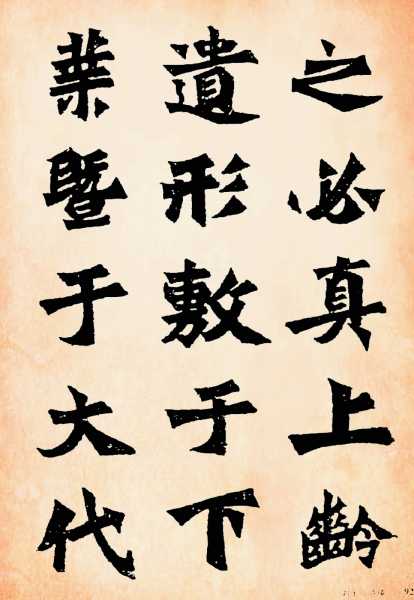 之必真上齡
遺形敷于下
葉暨于大代